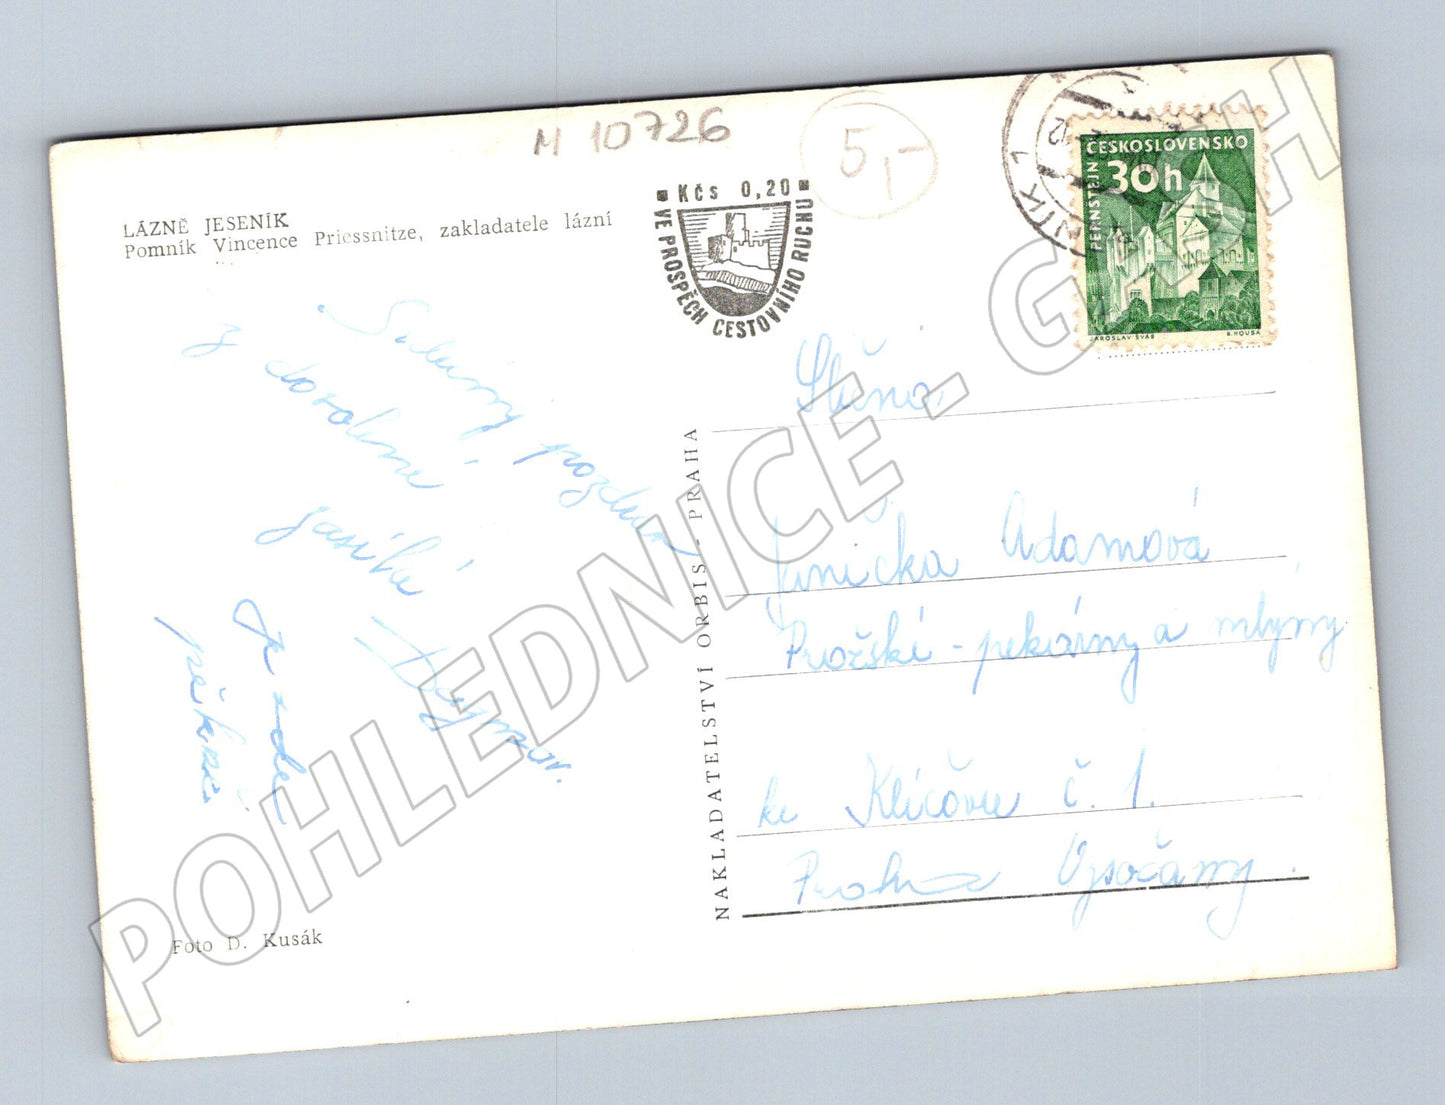 M 10726
5,-
LÁZNĚ JESENÍK
Pomník Vincence Priessnitze, zakladatele lázní
Kčs 0,20
VE PROSPĚCH CESTOVNÍHO RUCHU
NÍK 1
ČESKOSLOVENSKO
30h
PERNŠTEJN
JAROSLAV ŠVÁB
B. HOUSA
Srdečný pozdrav
z dovolené
zasílá
Je zde
pěkně
Slečna
Jiřička Adamová
Pražské - pekárny a mlýny
ke Klíčovu č. 1.
Praha Vysočany.
NAKLADATELSTVÍ ORBIS - PRAHA
Foto D. Kusák
POHLEDNICE - GASH